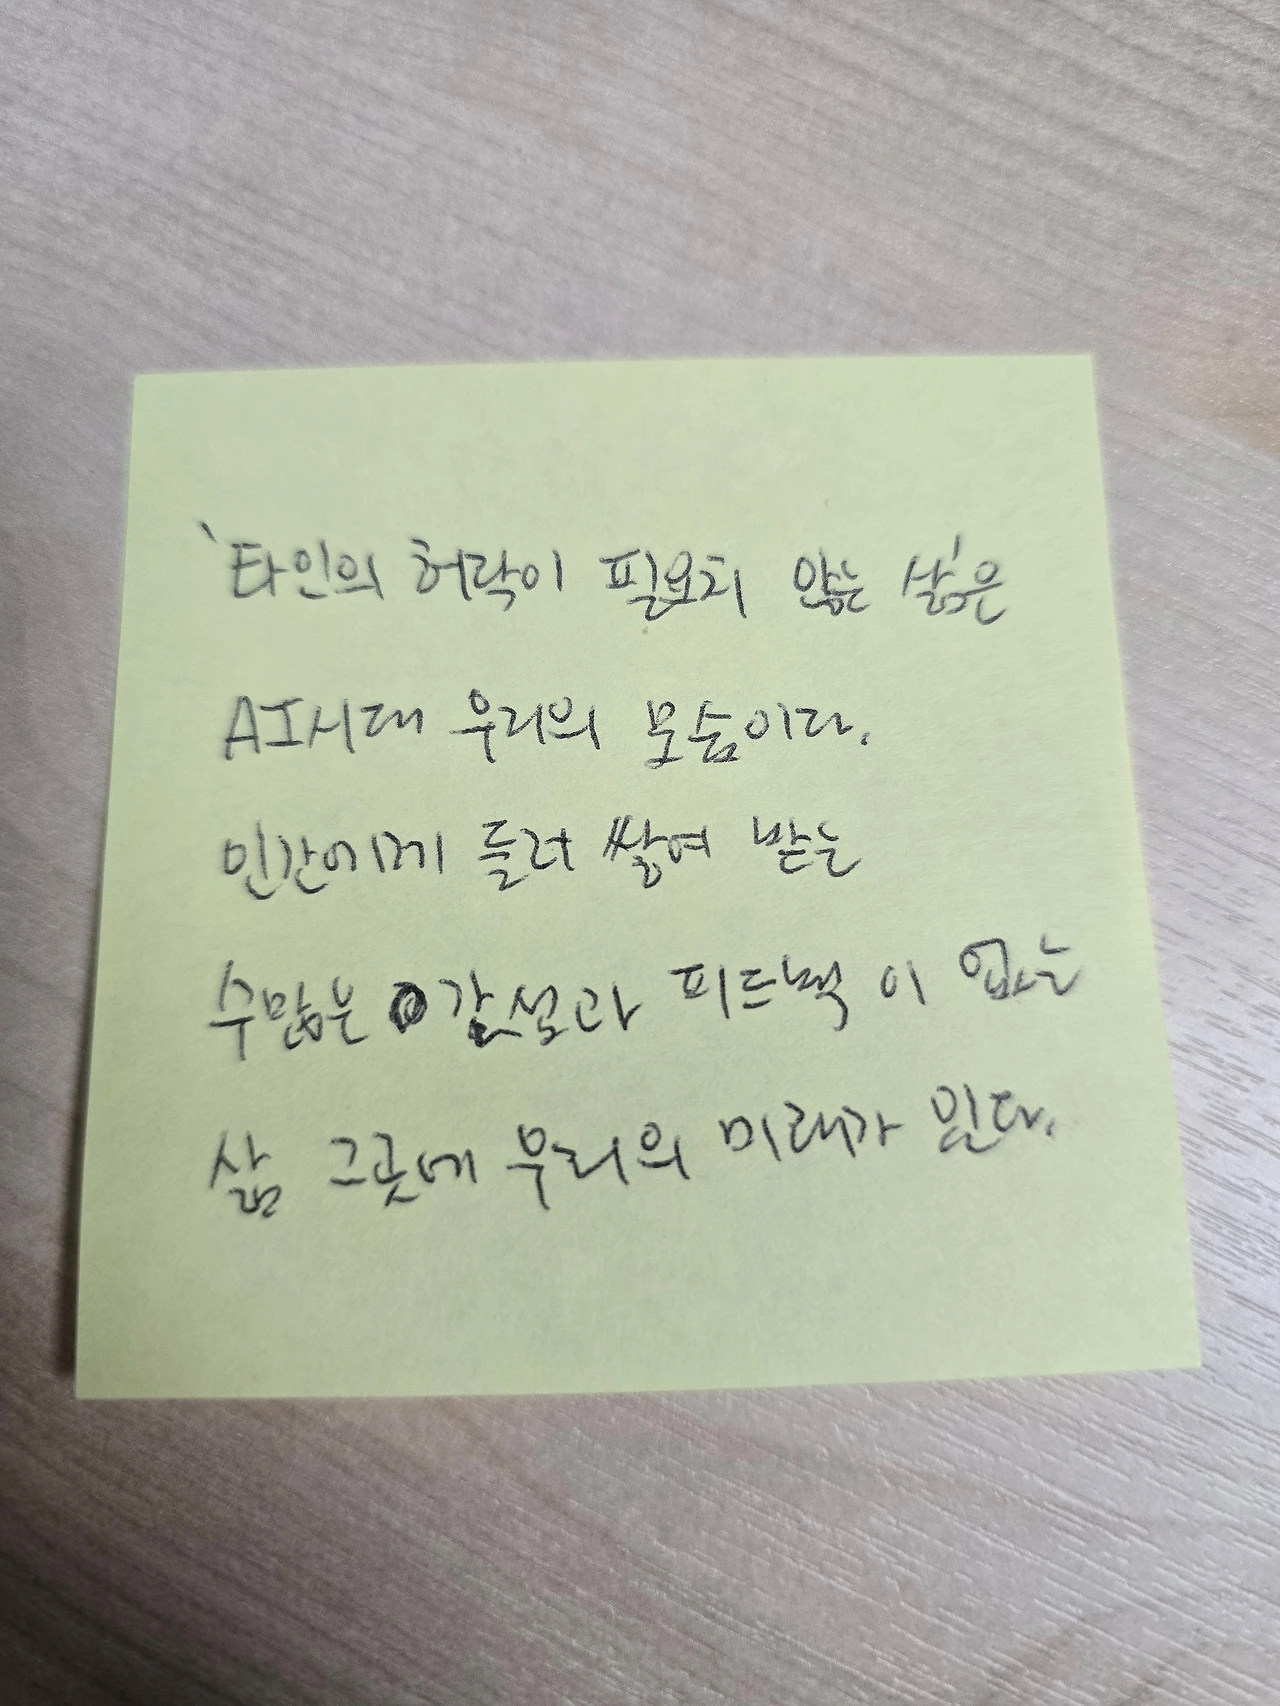 '타인의 허락이 필요치 않는 삶'은
AI시대 우리의 모습이다.
인간에게 둘러 쌓여 받는
수많은 간섭과 피드백이 없는
삶 그곳에 우리의 미래가 있다.